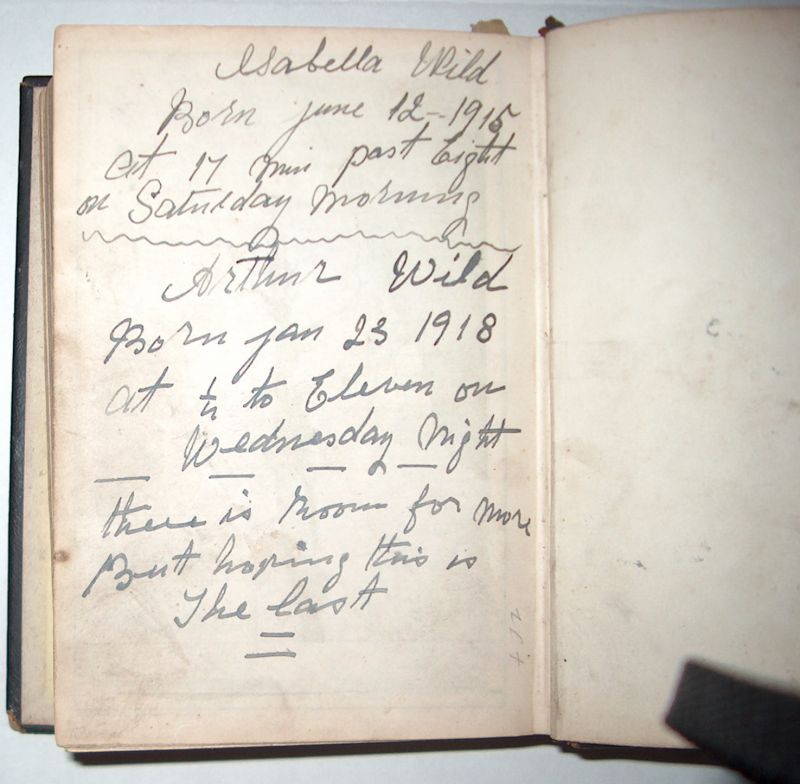 Isabella Wild
Born june 12--1915
at 17 min past Eight
on Saturday morning
Arthur Wild
Born jan 23 1918
at to Eleven on
Wednesday Night
there is Room for more
But hoping this is
The last